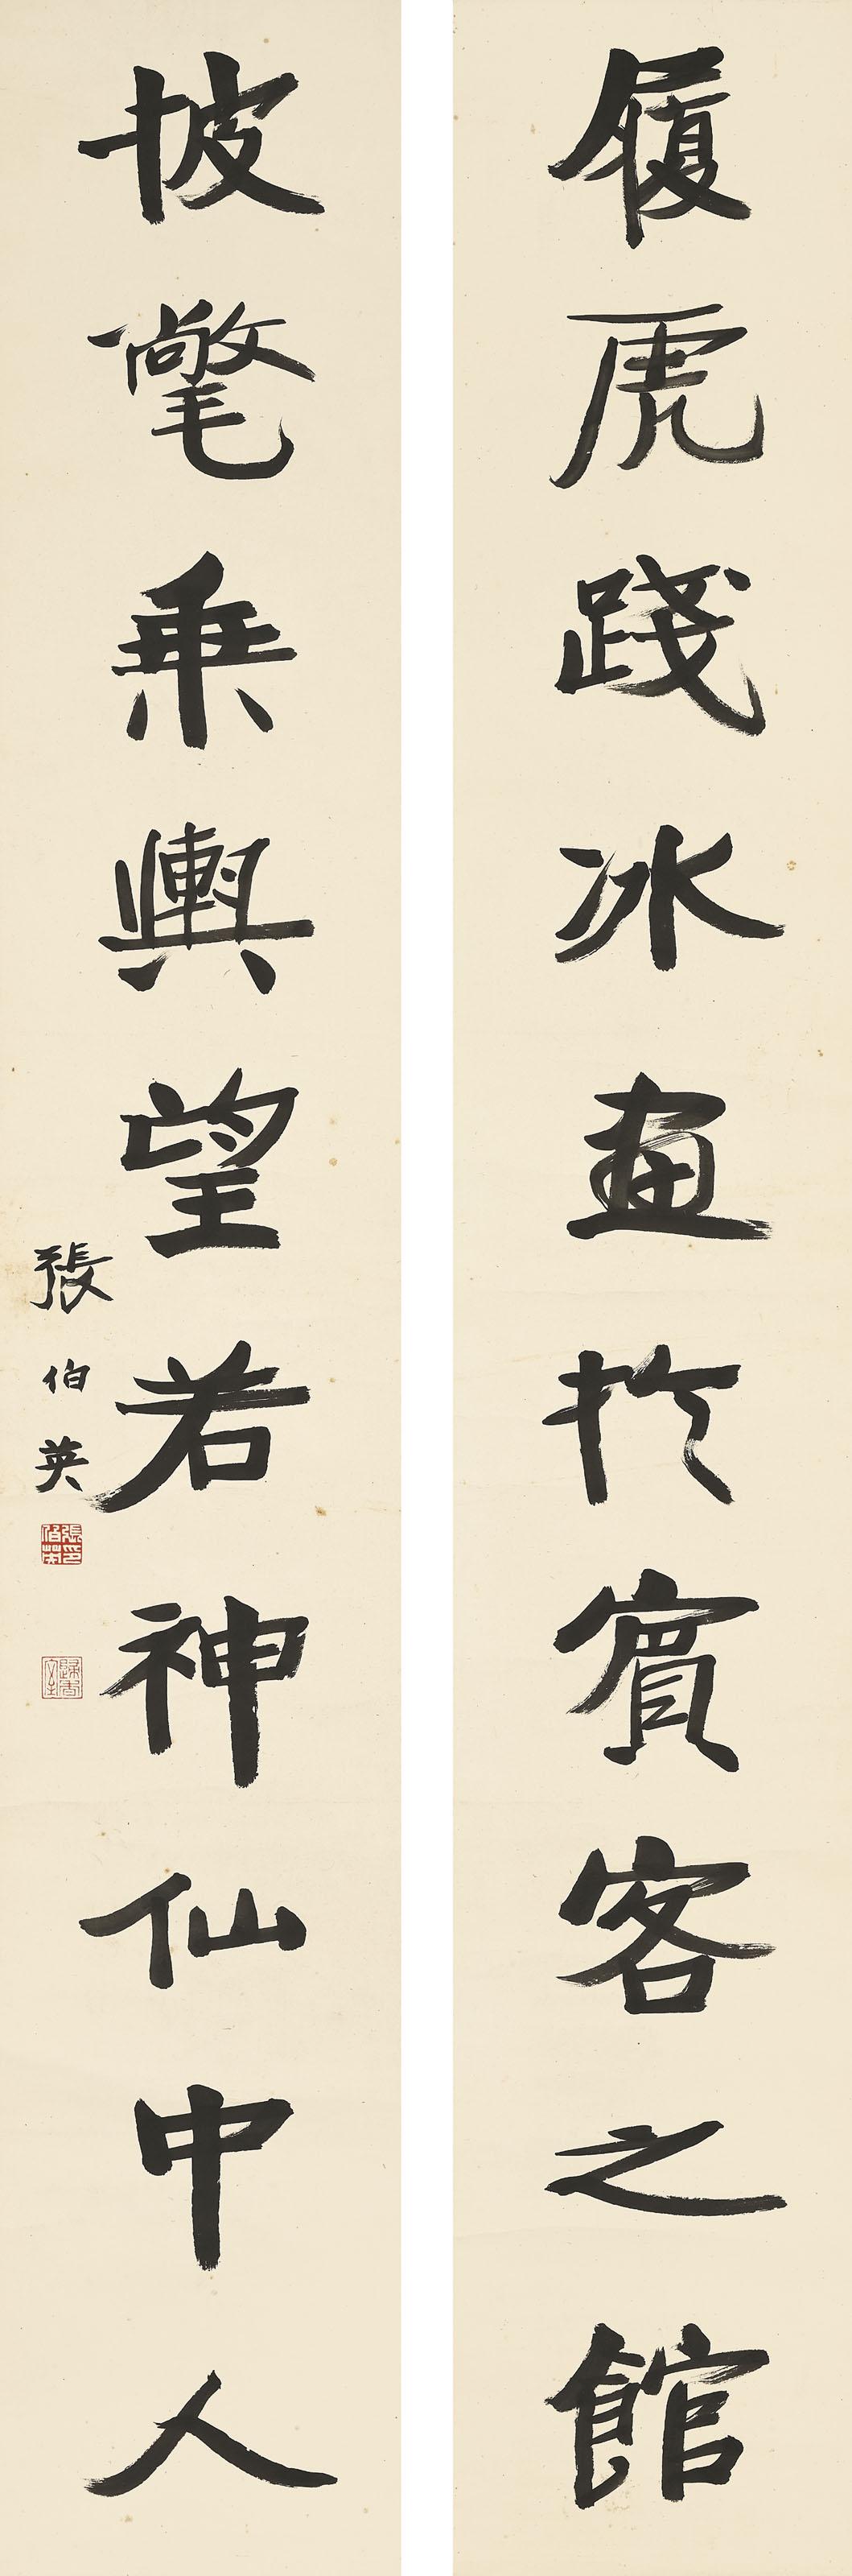 履虎踐冰畫於賓客之館
披氅乗輿望若神仙中人
張伯英
張伯英印